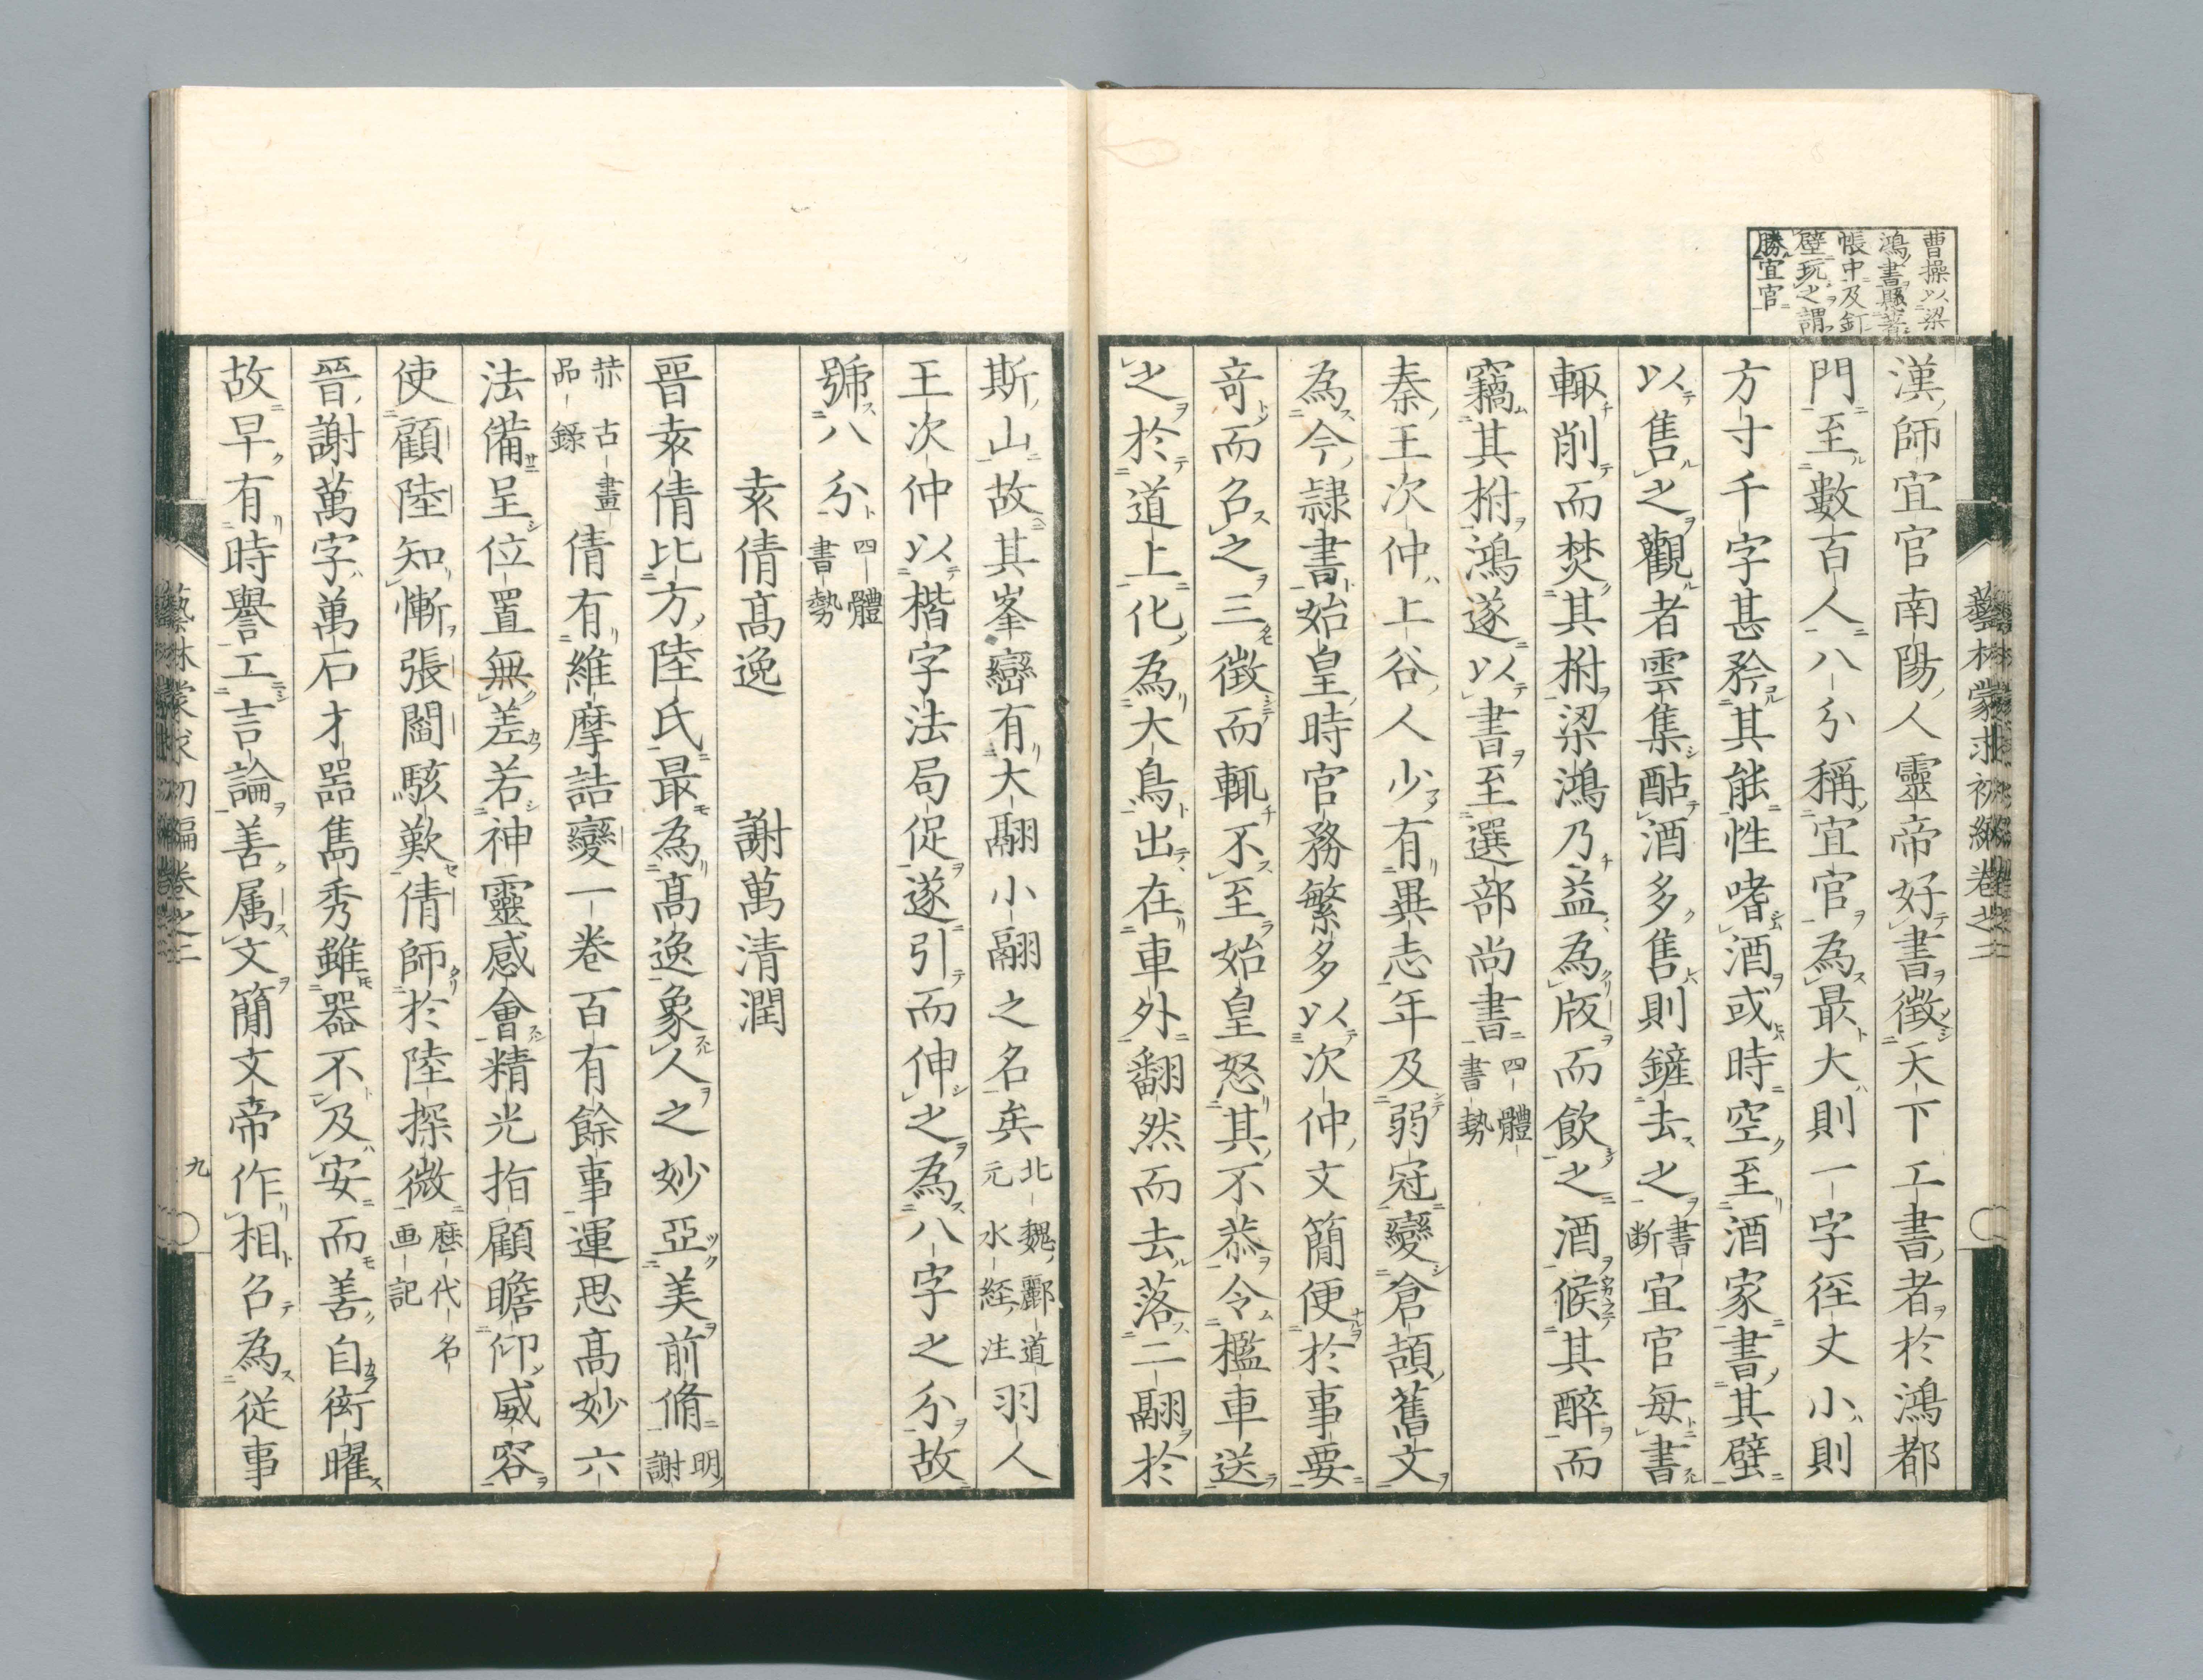 曹操以梁
鴻書懸著
帳中及釘
壁玩之謂
勝宜官
漢師宜官南陽人靈帝好書徴天下工書者於鴻都
門至數百人八分稱宜官為最大則一字径丈小則
方寸千字甚矜其能性嗜酒或時空至酒家書其壁
以售之觀者雲集酤酒多售則鏟去之書断宜官毎書
輙削而焚其柎梁鴻乃益為版而飲之酒候其醉而
竊其柎鴻遂以書至選部尚書四體書勢
秦王次仲上谷人少有異志年及弱冠變倉頡舊文
為今隷書始皇時官務繁多以次仲文簡便於事要
竒而召之三徴而輒不至始皇怒其不恭令檻車送
之於道上化為大鳥出在車外翻然而去落二翮於
斯山故其峯巒有大翮小翮之名矣北魏酈道元水経注羽人
王次仲以楷字法局促遂引而伸之為八字之分故
號八分四體書勢
袁倩髙逸　謝萬清潤
晉袁倩比方陸氏最為髙逸象人之妙亞美前脩明謝
赫古畫品録倩有維摩詰變一巻百有餘事運思髙妙六
法備呈位置無差若神靈感會精光指顧瞻仰威容
使顧陸知慚張閻駭歎倩師於陸探微歴代名画記
晉謝萬字萬石才噐雋秀雖器不及安而善自衒曜
故早有時譽工言論善属文簡文帝作相召為從事
藝林蒙求初編巻之二
九